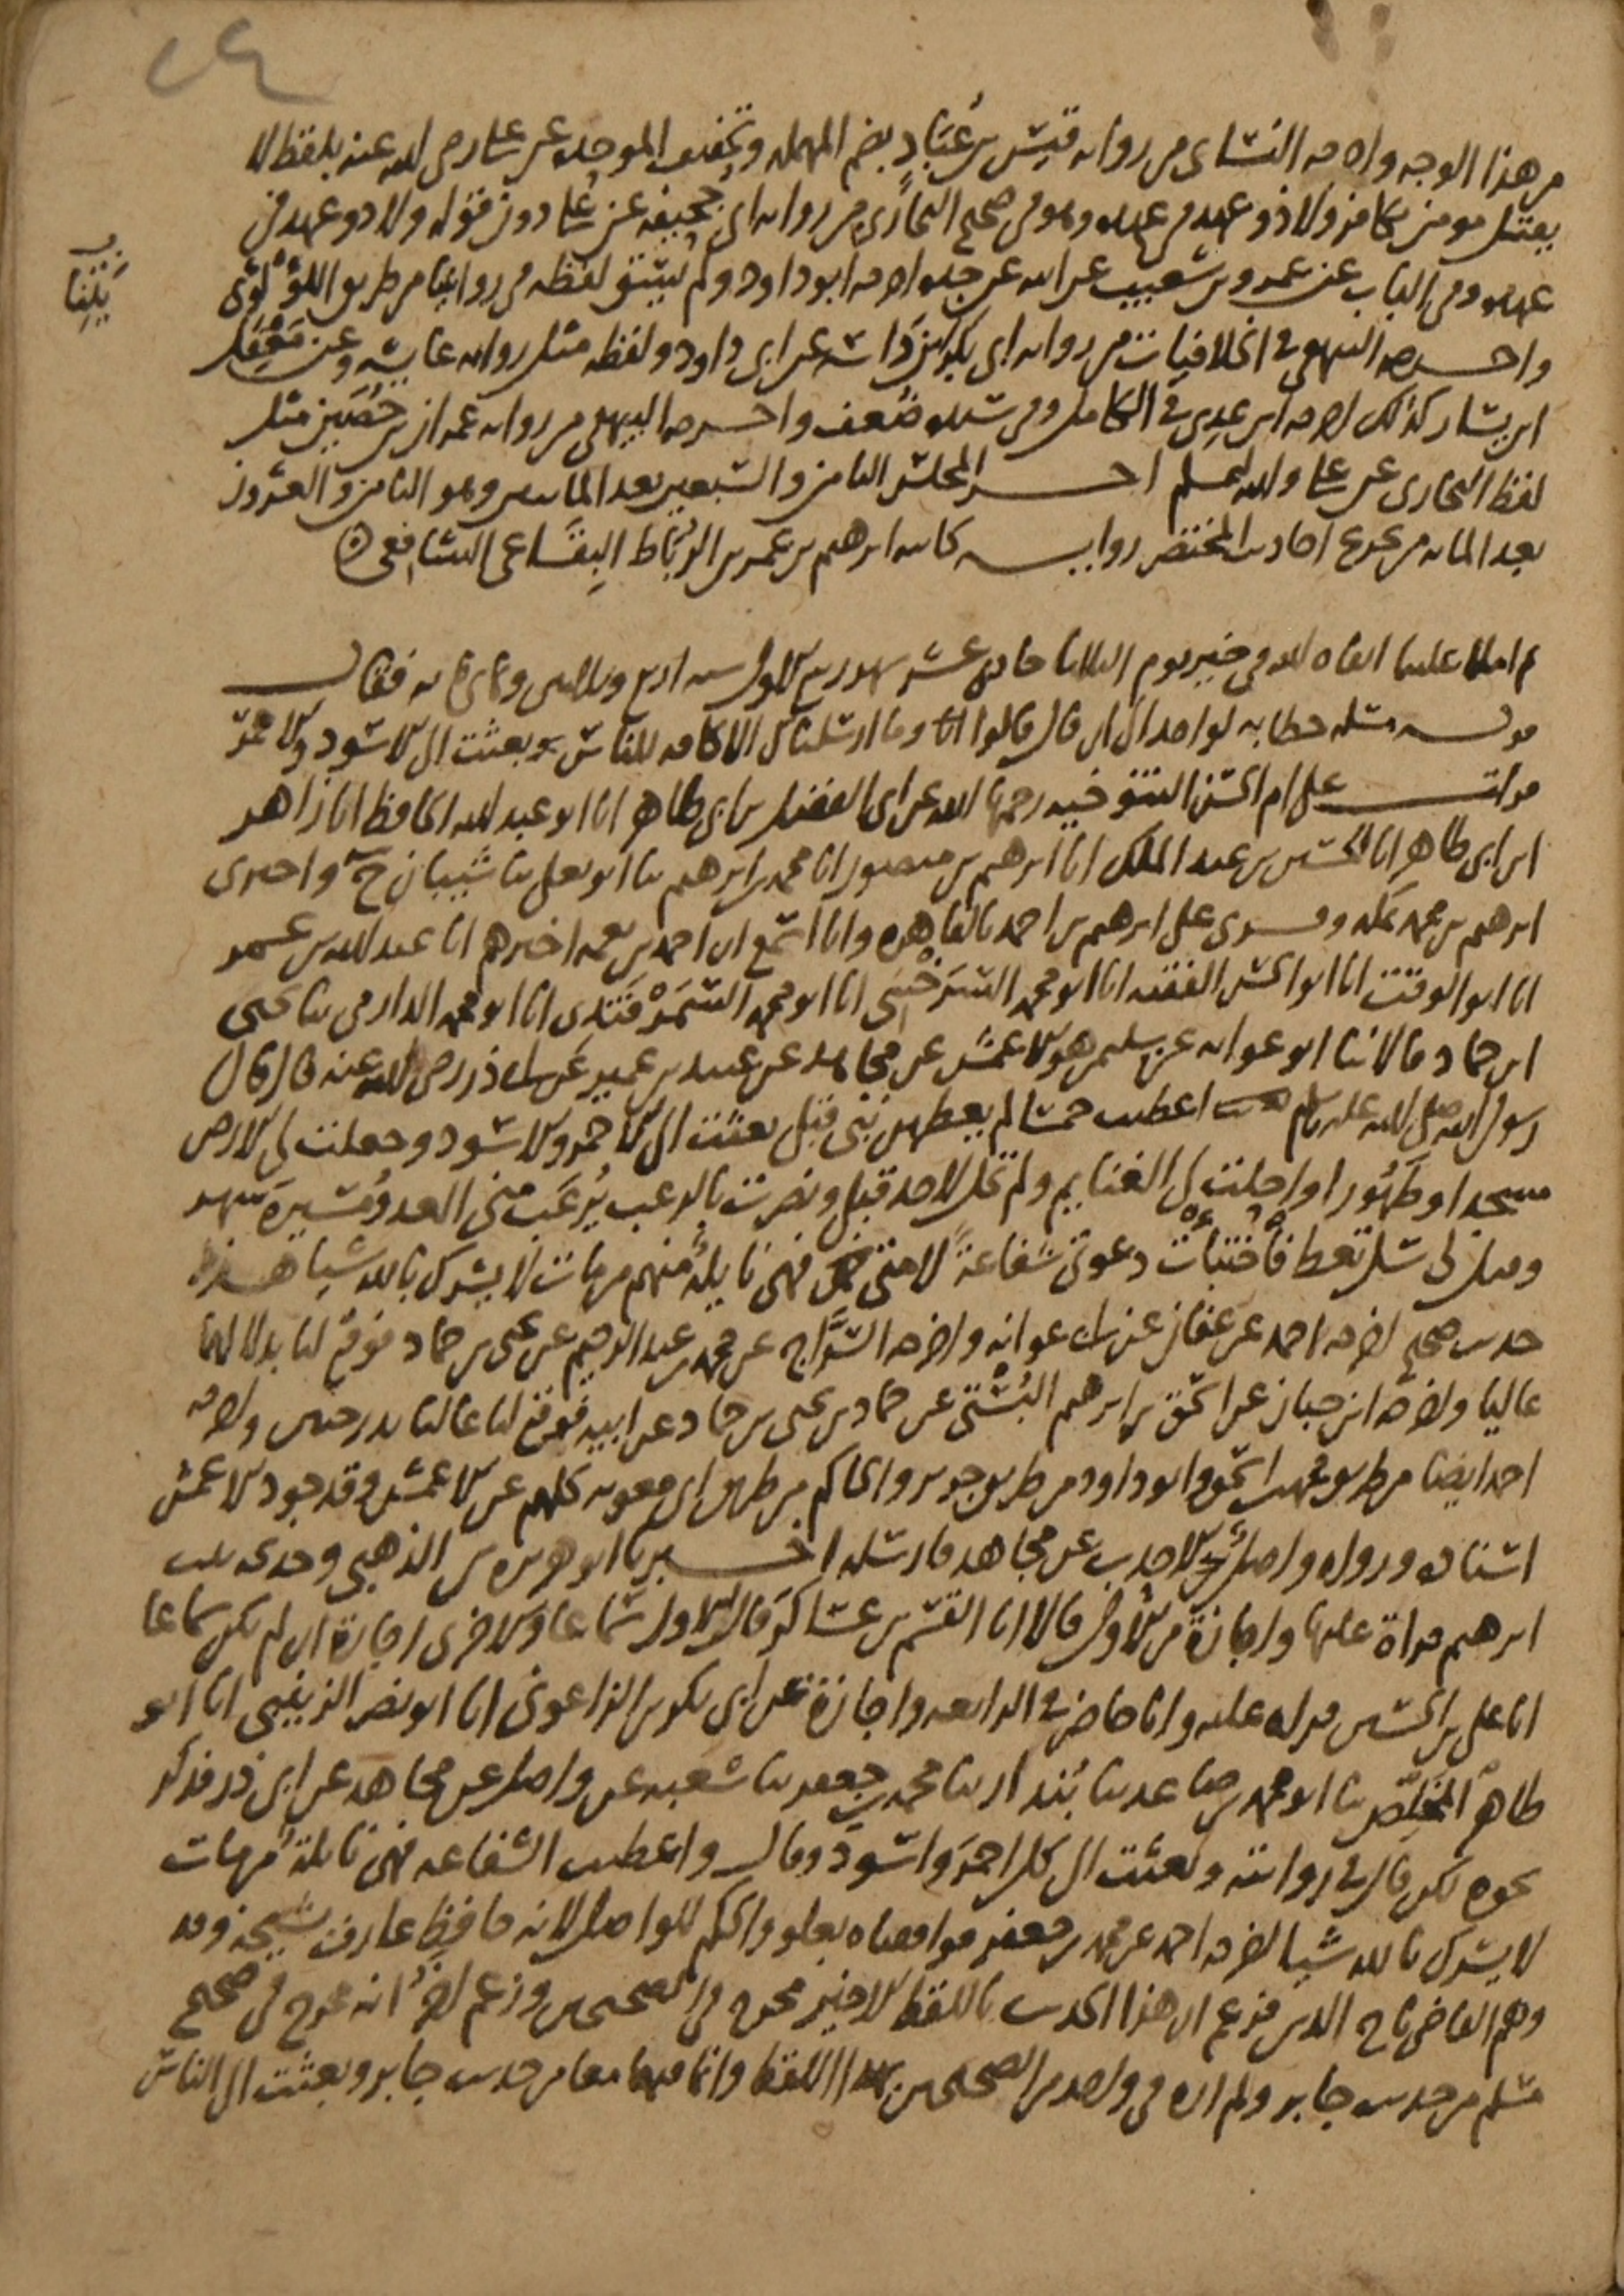 ٢٤
من هذا الوجه واخرجه النسائى من رواية قيس بن عُبَادٍ بضم المهملة وتخفيف الموحدة عن على رضى الله عنه بلفظ لا
يقتل مومن بكافر ولا ذو عهد فى عهده وهو فى صحيح البخارى من رواية ابى جُحيفة عن على دون قوله ولا ذو عهد فى
عهده وفى الباب عن عمرو بن شعيب عن ابيه عن جده اخرجه ابو داود ولم يسق لفظه فى روايتنا من طريق اللؤلؤى
واخرجه البيهقى فى الخلافيات من رواية ابى بكر ابن دَاسَة عن ابى داود ولفظه مثل رواية عايشة وعن مَعْقِل
ابن يسار كذلك اخرجه ابن عدى فى الكامل وفى سنده ضعف واخرجه البيهقى من رواية عمران بن حُصَين مثل
لفظ البخارى عن على والله اعلم اخر المجلس الثامن والسبعين بعد المايتين وهو الثامن والعشرون
بعد الماية من تخريج احاديث المختصر رواية كاتبه ابرهيم بن عمر بن الرُبَاط البِقَاعى الشافعى
ثم املا علينا ابقاه الله فى خير يوم الثلاثا حادى عشر شهر ربيع الاول سنة اربع وثلاثين وثمانى ماية فقال
قوله مسلة خطابه لواحد الى ان قال قالوا وما ارسلناك الا كافة للناس بعثت الى الاسود والاحمر
قرات على ام الحسن التنوخية رحمها الله عن ابى الفضل بن ابى طاهر انا ابو عبد الله الحافظ انا زاهر
ابن ابى طاهر انا الحسين بن عبد الملك انا ابرهيم بن منصور انا محمد بن ابرهيم ثنا ابو يعلى ثنا شيبان ح واخبرنى
ابرهيم بن محمد بمكة وقرى على ابرهيم بن احمد بالقاهرة وانا اسمع ان احمد بن نعمة اخبرهم انا عبد الله بن عمر
انا ابو الوقت انا ابو الحسن الفقيه انا ابو محمد السَرَخْسى انا ابو محمد السَمَرْقَندى انا ابو محمد الدارمى ثنا يحيى
ابن حماد قالا ثنا ابو عوانه عن سليمن هو الاعمش عن مجاهد عن عبيد بن عمير عن ابى ذر رضى الله عنه قال قال
رسول الله صلى الله عليه وسلم اعطيت خمسا لم يعطهن نبى قبلى بعثت الى الاحمر والاسود وجعلت لى الارض
مسجدا وطَهُورا واحلت لى الغنايم ولم تحل لاحد قبلى ونصرت بالرعب يُرعَب منى العدو مَسِيرَة شهر
وقيل لى سل تعط فأختبأت دعوتى شفاعةً لامتى فهى نايلة منهم من مات لا يشرك بالله شيا هذا
حديث صحيح اخرجه احمد عن عفان عن ابى عوانه واخرجه السَّراج عن محمد بن عبد الرحيم عن يحيى بن حماد فوقع لنا بدلا لهما
عاليا واخرجه ابن حبان عن اسحق بن ابرهيم البُسْتى عن حماد بن يحيى بن حماد عن ابيه فوقع لنا عاليا بدرجتين واخرجه
احمد ايضا من طريق محمد بن اسحق وابو داود من طريق جرير والحاكم من طريق ابى معوية كلهم عن الاعمش وقد جود الاعمش
اسناده ورواه واصل الاحدب عن مجاهد فارسله اخبرنا ابو هريرة بن الذهبى وخديجة بنت
ابرهيم قراة عليها واجازة من الاول قالا انا القسم بن عساكر قال الاول سماعا والاخرى اجازة ان لم يكن سماعا
انا على بن الحسين قراة عليه وانا حاضر فى الرابعة واجازة عن ابى بكر بن الزاغونى انا ابو نصر الزينبى انا ابو
طاهر المُخَلِّص ثنا ابو محمد بن صاعد ثنا بُندار ثنا محمد بن جعفر ثنا شعبة عن واصل عن مجاهد عن ابى ذر فذكر
نحوه لكن قال فى روايته وبعثت الى كل احمرَ واسودَ وقال واعطيت الشفاعة فهى نايلة من مات
لا يشرك بالله شيا اخرجه احمد عن محمد بن جعفر فوافقناه بعلو والحكم للواصل لانه حافظ عارف بشيخه وقد
وهم القاضى تاج الدين فزعم ان هذا الحديث باللفظ الاخير مخرج فى الصحيحين وزعم انه مخرج فى صحيح
مسلم من حديث جابر ولم اره فى واحد من الصحيحين بهذا اللفظ وانما فيهما معا من حديث جابر وبعثت الى الناس